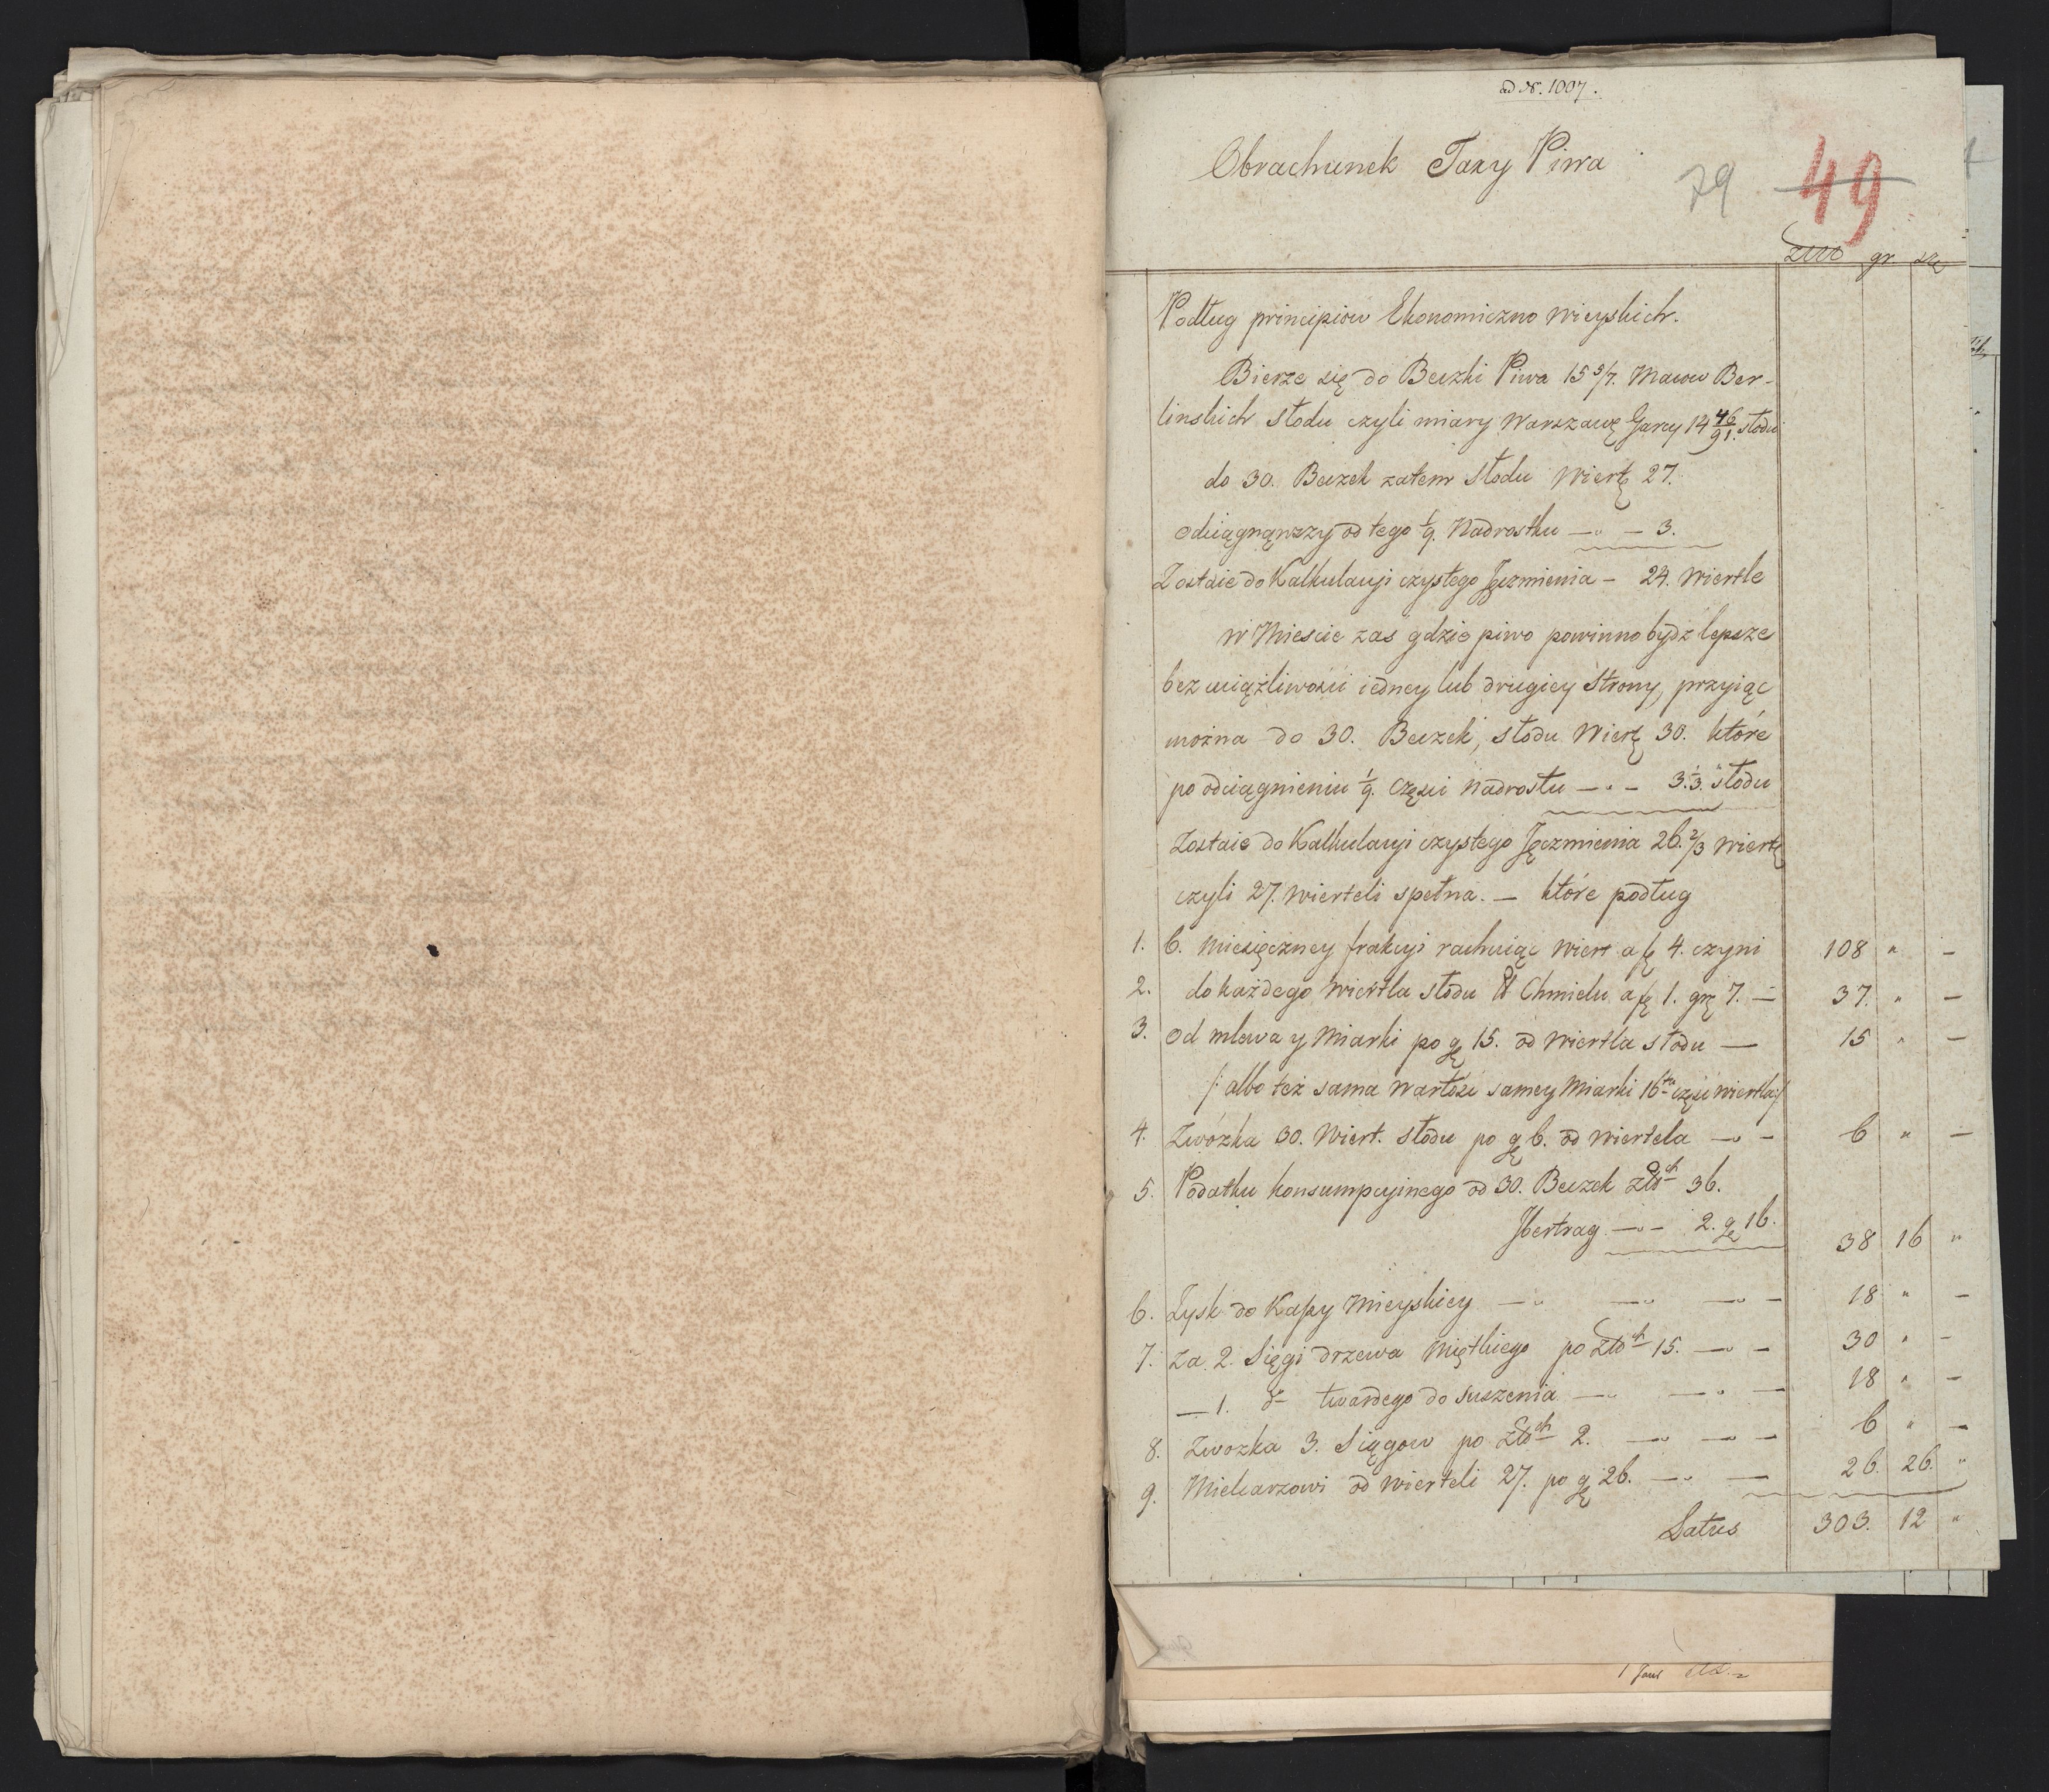 ad N. 1007.
Obrachunek Taxy Piwa
79 49
gr.
Podług principiow Ekonomiczno wieyskich.
Bierze się do Beczki Piwa 15 5/7. Macow Ber-
linskich Słodu czyli miary Warszawę Garcy 14 46/91. słodu
do 30. Beczek zatem Słodu Wiert 27.
odciągnąwszy od tego 1/9. Nadrostku — " — 3.
Zostaie do Kalkulacyi czystego Jęczmienia — 24. Wiertle
w Miescie zas gdzie piwo powinno bydz lepsze
bez uciążliwosci iedney lub drugiey Strony, przyiąc
można do 30. Beczek, słodu Wiert 30. które
po odciągnieniu 1/9. Częsci nadrostu — " — 3. 1/3. słodu
Zostaie do Kalkulacyi czystego Jęczmienia 26. 2/3 Wiert
czyli 27. Wierteli spełna. — które podług
1. 6. Miesięczney frakcyi rachuiąc Wiert a f 4. czyni 108 " —
2. do każdego Wiertla słodu Chmielu a f 1. gr 7. — 37. " —
3. Od mlewa y Miarki po g 15. od Wiertla słodu — 15 " —
/: albo też sama wartość samey Miarki 16ta część wiertla :/
4. Zwózka 30. Wiert. słodu po g 6. od wiertela — " — 6 " —
5. Podatku konsumpcyinego od 30. Beczek Złch 36.
Ibertrag — " — 2. g 16. 38 16 "
6. Zysk do Kassy Mieyskiey — " — " — " — 18 " —
7. Za 2. Sięgi drzewa Miętkiego po Złch 15. — " — 30 " —
— 1. do twardego do suszenia — " — " — 18 " —
8. Zwozka 3. Siągow po Złch 2. — " — " — 6 " —
9. Mielcarzowi od wierteli 27. po g 26. — " — 26. 26. "
Latus 303. 12 "